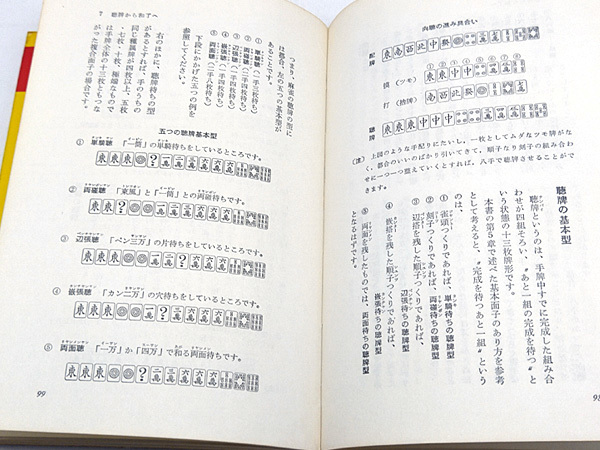 内聴の進み具合い
配牌
摸(ツモ)
打(捨牌)
聴牌
(注) 上図のような手配りにたいし、一枚としてムダなツモ牌がな
く、都合のいいのばかり引いてきて、順子なり刻子の組み合わ
せに一つ一つ整えていくとすれば、八手で聴牌させることがで
きます。
聴牌の基本型
聴牌というのは、手牌中すでに完成した組み合
わせが四組そろい、〝あと一組の完成を待つ〟と
いう状態の十三枚牌形です。
本書の第5章で述べた基本面子のあり方を参考
として考えると、〝完成を待つあと一組〟という
のは、
① 雀頭つくりであれば、単騎待ちの聴牌型
② 刻子つくりであれば、両碰待ちの聴牌型
③ 辺搭を残した順子つくりであれば、
辺張待ちの聴牌型
④ 嵌搭を残した順子つくりであれば、
嵌張待ちの聴牌型
⑤ 両面を残したものでは、両面待ちの聴牌型
となるはずです。
98
7 聴牌から和了へ
つまり、麻雀の聴牌の型に
は都合、左の五つの基本型が
あることです。
① 単騎聴(一手三枚待ち)
② 両碰聴(二手四枚待ち)
③ 辺張聴(一手四枚待ち)
④ 嵌張聴(一手四枚待ち)
⑤ 両面聴(二手八枚待ち)
下段にかかげた五つの例を
参照してください。
右のほかに、聴牌待ちの型
があるとすれば、手のうちの
同じ種属牌が四枚以上、五枚
・七枚・十枚、極端なもので
は手牌全体の十三枚ともつな
がった複合面子の場合です。
五つの聴牌基本型
① 単騎聴 「一筒」の単騎待ちをしているところです。
② 両碰聴 「東風」と「一筒」との両碰待ちです。
③ 辺張聴 「ペン三万」の片待ちをしているところです。
④ 嵌張聴 「カン三万」の穴待ちをしているところです。
⑤ 両面聴 「一万」か「四万」で和る両面待ちです。
99